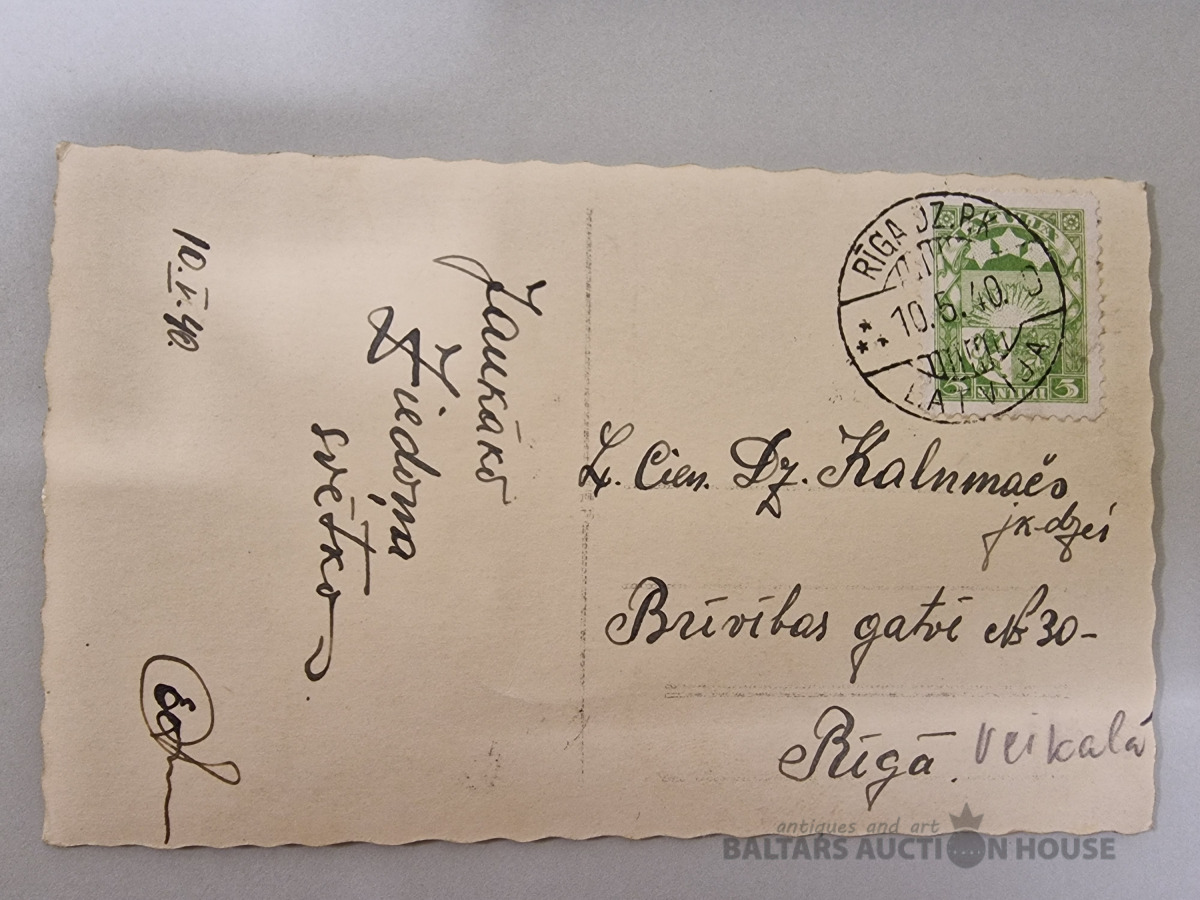 10.V.40.
Jaukākō
Ziedoņa
svētkō
RĪGA DZ. PK
10.5.40.
LATVIJA
5 5
Ļ. Cien. Dz. Kalnmačs
jk-dzei
Brīvības gatvē № 30-
Rīgā. Veikalā
antiques and art
BALTARS AUCTION HOUSE